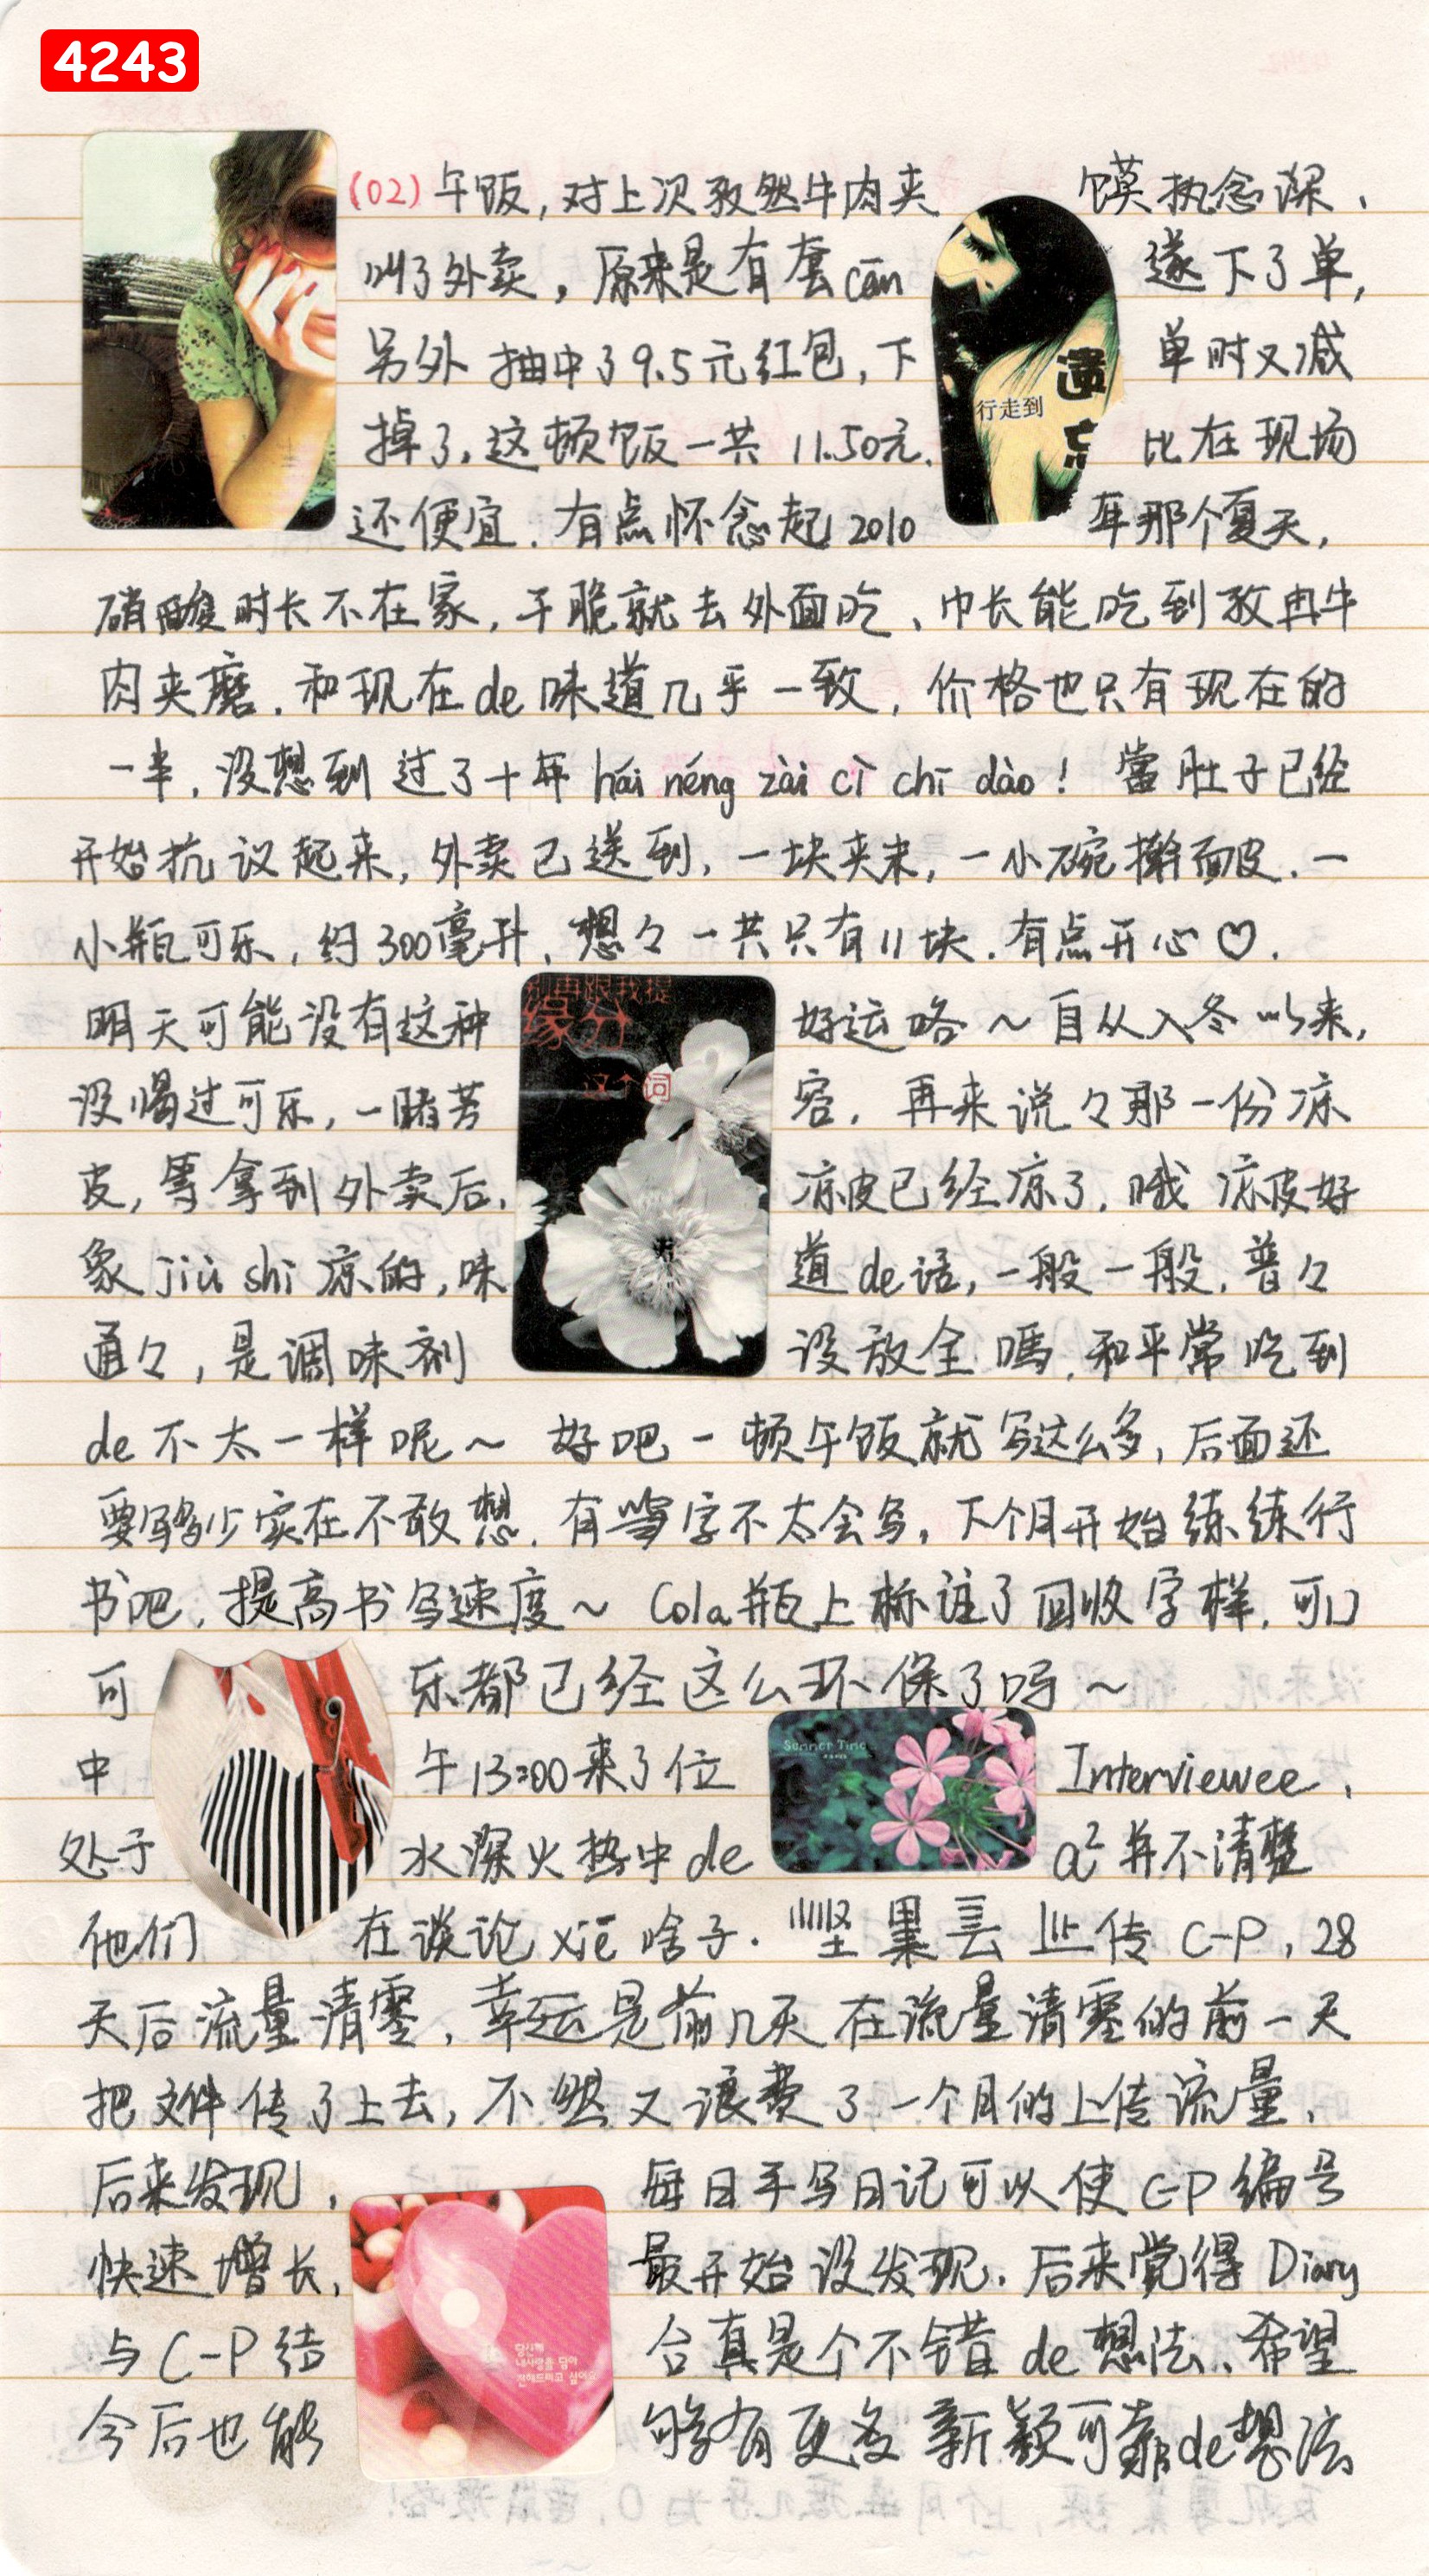 4243
(02)午饭,对上次孜然牛肉夹馍执念深、
叫了外卖,原来是有套cān 遂下了单,
另外 抽中了9.5元红包,下单时又减
掉了,这顿饭一共 11.50元. 比在现场
还便宜.有点怀念起2010年那个夏天,
行走到
遗忘
硝酸时长不在家,干脆就去外面吃、巾长能吃到孜冉牛
肉夹磨.和现在de味道几乎一致,价格也只有现在的
一半,没想到 过了十年 hái néng zài cì chī dào! 當肚子已经
开始抗议起来,外卖已送到,一块夹末,一小碗擀面皮.一
小瓶可乐,约300毫升、想々一共只有11块.有点开心♡.
明天可能没有这种好运咯~自从入冬以来,
没喝过可乐,一睹芳容,再来说々那一份凉
皮,等拿到外卖后,凉皮已经凉了,哦 凉皮好
象jiù shì凉的,味道de话,一般一般,普々
通々,是调味剂没放全嗎,和平常吃到
别再跟我提
缘分
这个词
de不太一样呢~ 好吧一顿午饭就写这么多,后面还
要写多少实在不敢想.有些字不太会写,下个月开始练练行
书吧,提高书写速度~ Cola瓶上标注了回收字样,可口
可乐都已经这么环保了吗~
中午13:00来了位Interviewee、
Summer Time
处于水深火热中dea²并不清楚
他们在谈论xiē啥子. 坚果云上传C-P,28
天后流量清零,幸运是前几天在流量清零的前一天
把文件传了上去,不然又浪费了一个月的上传流量、
后来发现,每日手写日记可以使C-P编号
快速增长,最开始没发现.后来觉得Diary
与C-P结合真是个不错de想法、希望
今后也能够有更多新颖可靠de想法